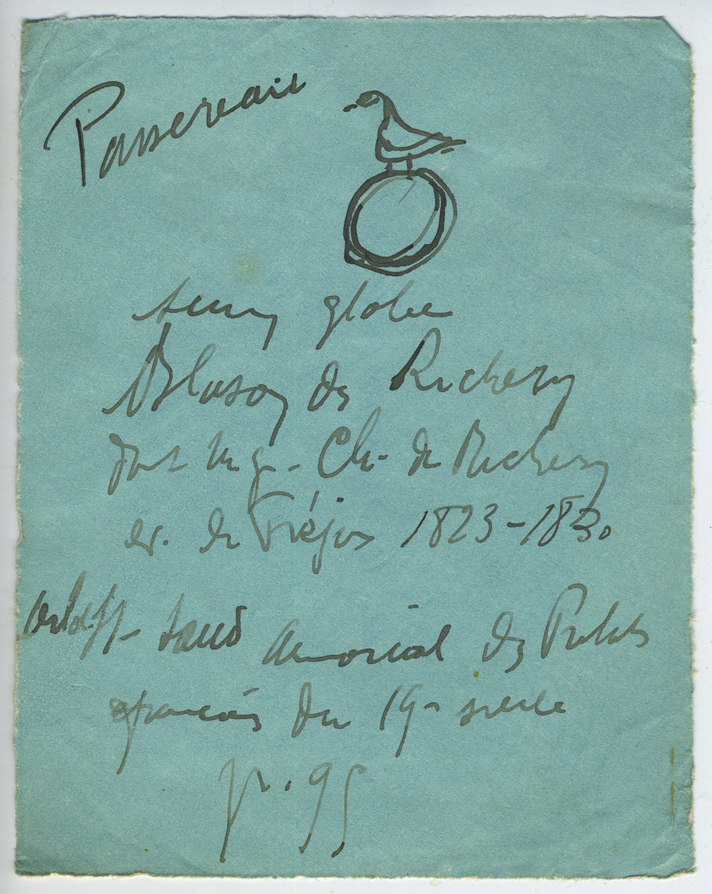 Passereau
sur globe
Blason des Richery
dont Mgr. Ch. de Richery
ev. de Fréjus 1823-1830
armorial des Prélats
français du 19e siècle
p. 95